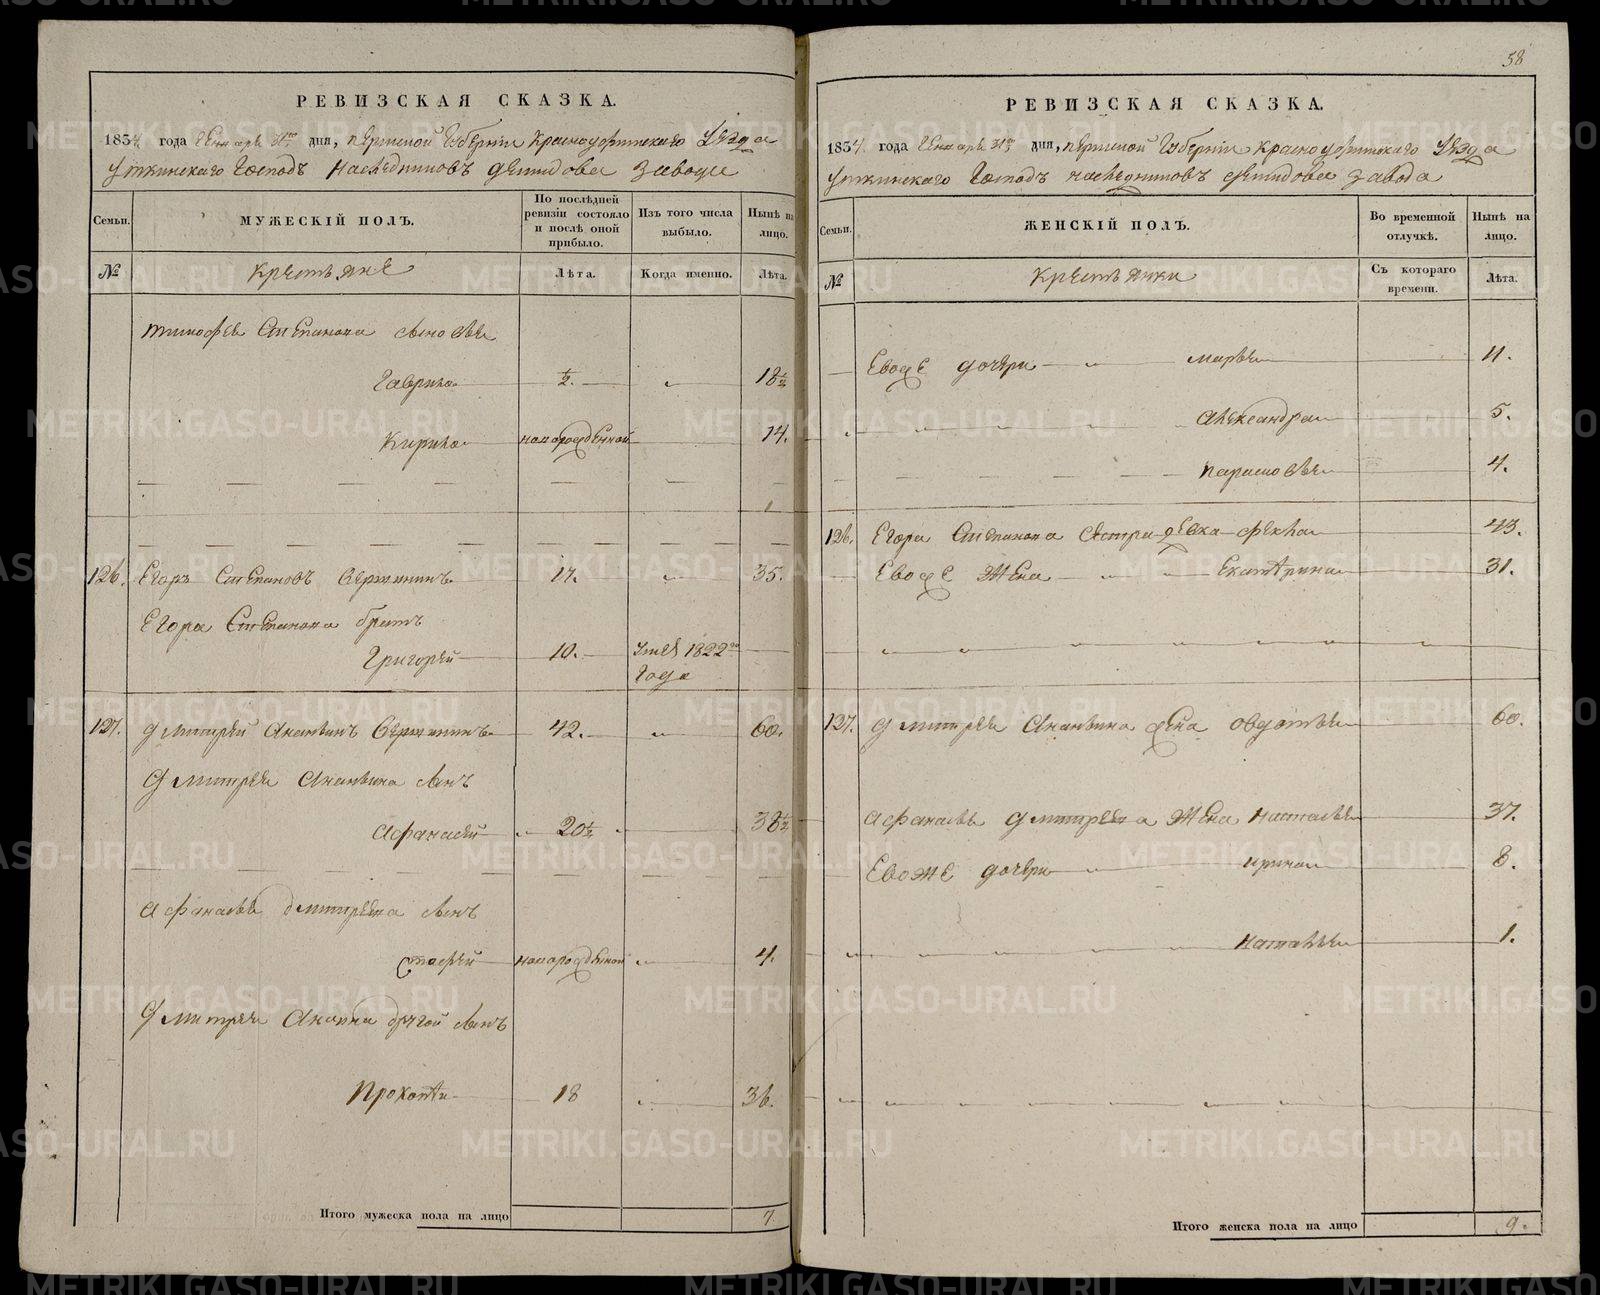 РЕВИЗСКАЯ СКАЗКА.
1834 года Генваря 31го дня, Пермской Губернии Красноуфимскаго Уезда
Уткинскаго Господъ Наследниковъ Демидова завода
Семьи.
МУЖЕСКІЙ ПОЛЪ.
По послѣдней ревизіи состояло и послѣ оной прибыло.
Изъ того числа выбыло.
Нынѣ на лицо.
№
Крестьяне
Лѣта.
Когда именно.
Лѣта.
Тимофея Степанова сыновья
Гаврило ½. 18½
Кирило новорожденной 14.
126. Егоръ Степановъ Вершининъ 17. 35.
Егора Степанова братъ
Григорей 10. Умеъ 1822го
Года
127. Дмитрей Ананьинъ Вершининъ 42. 60.
Дмитрея Ананьина сынъ
Афанасей 20½ 38½
Афанасья Дмитрева сынъ
новорожденной 4.
Дмитрея Ананьина другой сынъ
Прокопей 18 36.
Итого мужеска пола на лицо 7.
58
РЕВИЗСКАЯ СКАЗКА.
1834 года Генваря 31го дня, Пермской Губернии Красноуфимскаго Уезда
Уткинскаго Господъ Наследниковъ Демидова завода
Семьи.
ЖЕНСКІЙ ПОЛЪ.
Во временной отлучкѣ.
Нынѣ на лицо.
№
Крестьянки
Съ котораго времени.
Лѣта.
Евоже дочери Марья 11.
Александра 5.
Парасковья 4.
126. Егора Степанова сестра девка Фекла 43.
Евоже жена Екатерина 31.
127. Дмитрея Ананьина жена Овдотья 60.
Афанасья Дмитрева жена Наталья 37.
Евоже дочери Ирина 8.
Наталья 1.
Итого женска пола на лицо 9.
METRIKI.GASO-URAL.RU